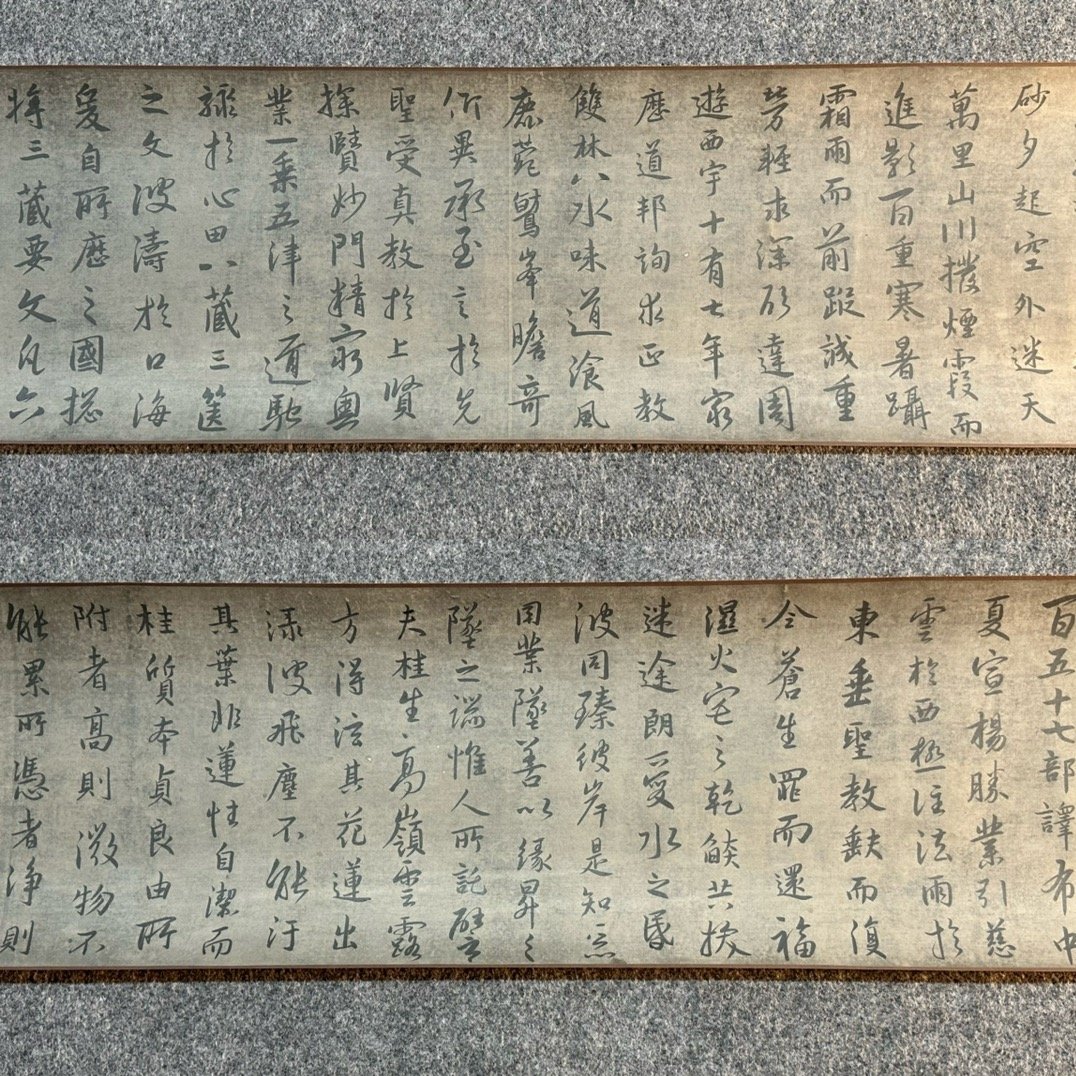 砂夕起空外迷天
萬里山川撥煙霞而
進影百重寒暑躡
霜雨而前蹤誠重
勞輕求深欲達周
遊西宇十有七年窮
歷道邦詢求正教
雙林八水味道飡風
鹿菀鷲峯瞻奇
仰異承至言於先
聖受真教於上賢
探賾妙門精窮奧
業一乘五律之道馳
驟於心田八藏三篋
之文波濤於口海
爰自所歷之國揔
將三藏要文凡六
百五十七部譯布中
夏宣楊勝業引慈
雲於西極注法雨於
東垂聖教缺而復
今蒼生罪而還福
濕火宅之乾燄共拔
迷途朗愛水之昏
波同臻彼岸是知惡
因業墜善以緣昇々
墜之端惟人所託譬
夫桂生高嶺雲露
方得泫其花蓮出
淥波飛塵不能汙
其葉非蓮性自潔而
桂質本貞良由所
附者高則微物不
能累所憑者淨則